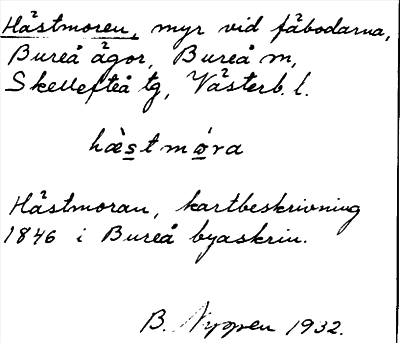 Hästmoren, myr vid fäbodarna,
Bureå ägor, Bureå m,
Skellefteå tg, Västerb. l.
hæstmøra
Hästmoran, kartbeskrivning
1846 i Bureå byaskrin.
B. Nyppen 1932.